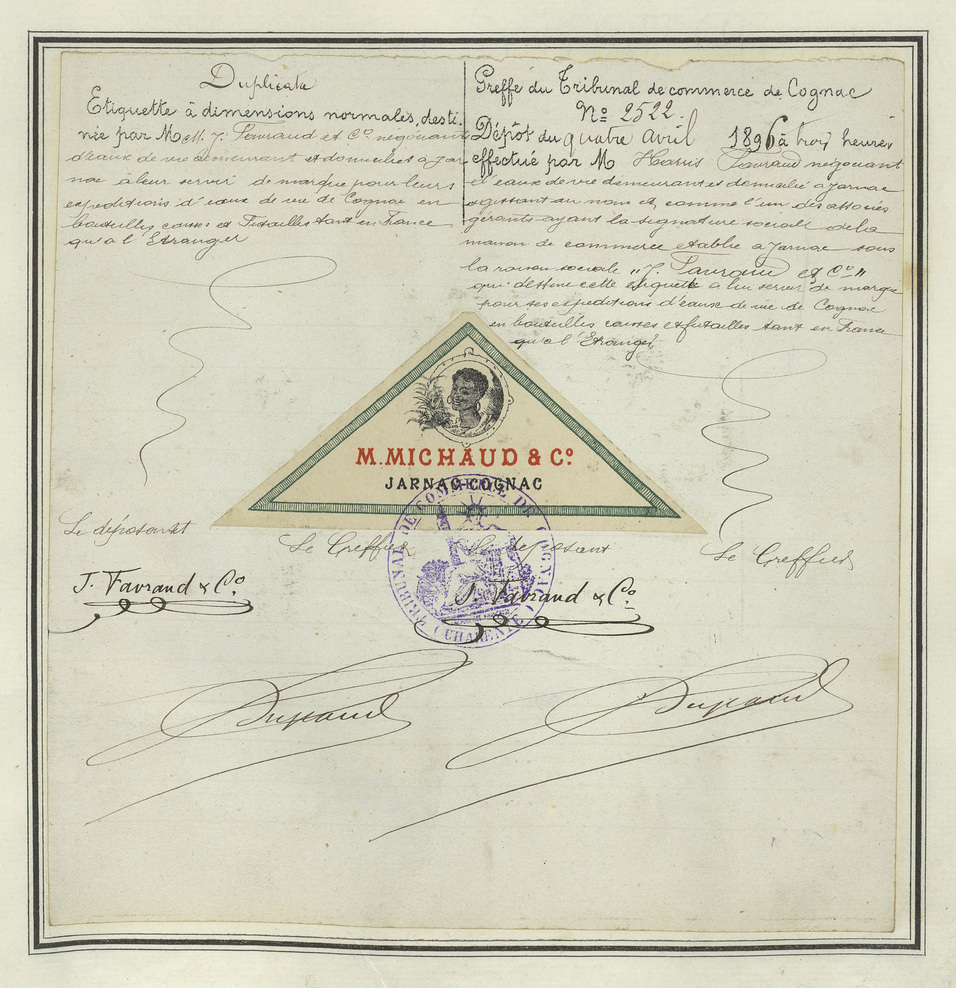 Duplicata
Etiquette à dimensions normales, desti-
née par M et J. Favraud et Cº négociants
d'eaux de vie demeurant et domiciliés a Jar-
nac a leur servir de marque pour leurs
expeditions d'eaux de vie de Cognac en
bouteilles caisses et Futailles tant en France
qu'a l'Etranger
Greffe du Tribunal de commerce de Cognac
Nº 2522.
Dépôt du quatre avril 1896 à trois heures
effectué par M Favraud négociant
d'eaux de vie demeurant et domicilié a Jarnac
agissant au nom et comme l'un des associés
gérants ayant la signature sociale de la
maison de commerce etablie a Jarnac sous
la raison sociale "J. Favraud et Cº"
qui destine cette etiquette a lui servir de marque
pour ses expeditions d'eaux de vie de Cognac
en bouteilles caisses et futailles tant en France
qu'a l'Etranger
M. MICHAUD & Cº
JARNAC-COGNAC
TRIBUNAL DE COMMERCE DE COGNAC
(CHARENTE)
Le déposant
Le Greffier
Le deposant
Le Greffier
J. Favraud & Cº
J. Favraud & Cº